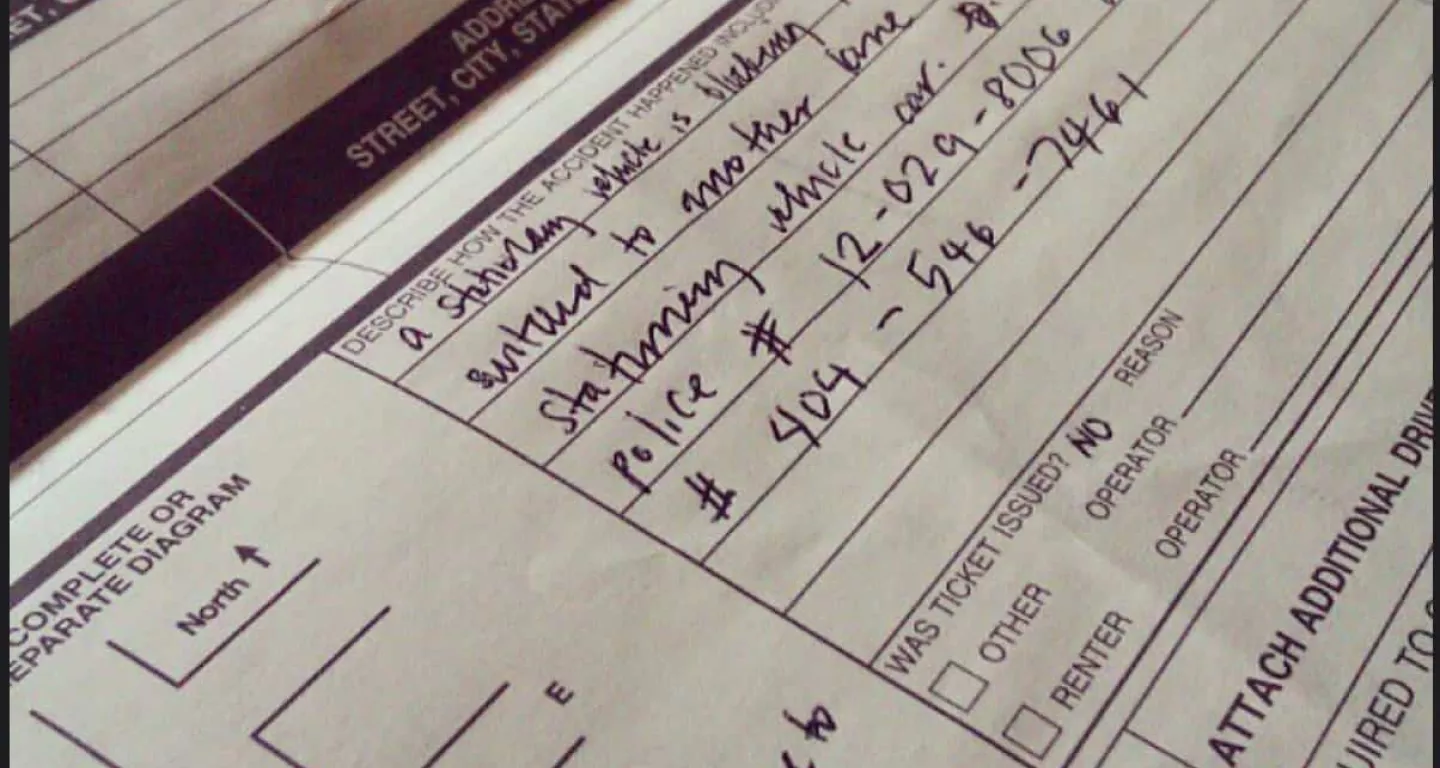 ADDRE
STREET, CITY, STATE
DESCRIBE HOW THE ACCIDENT HAPPENED
a stationary vehicle is blocking
switched to another lane
stationary vehicle car.
police # 12-029-8006
# 404 - 546 -7461
WAS TICKET ISSUED? NO REASON
OTHER OPERATOR
RENTER OPERATOR
ATTACH ADDITIONAL DRIV
UIRED TO
COMPLETE OR
EPARATE DIAGRAM
North
E
to